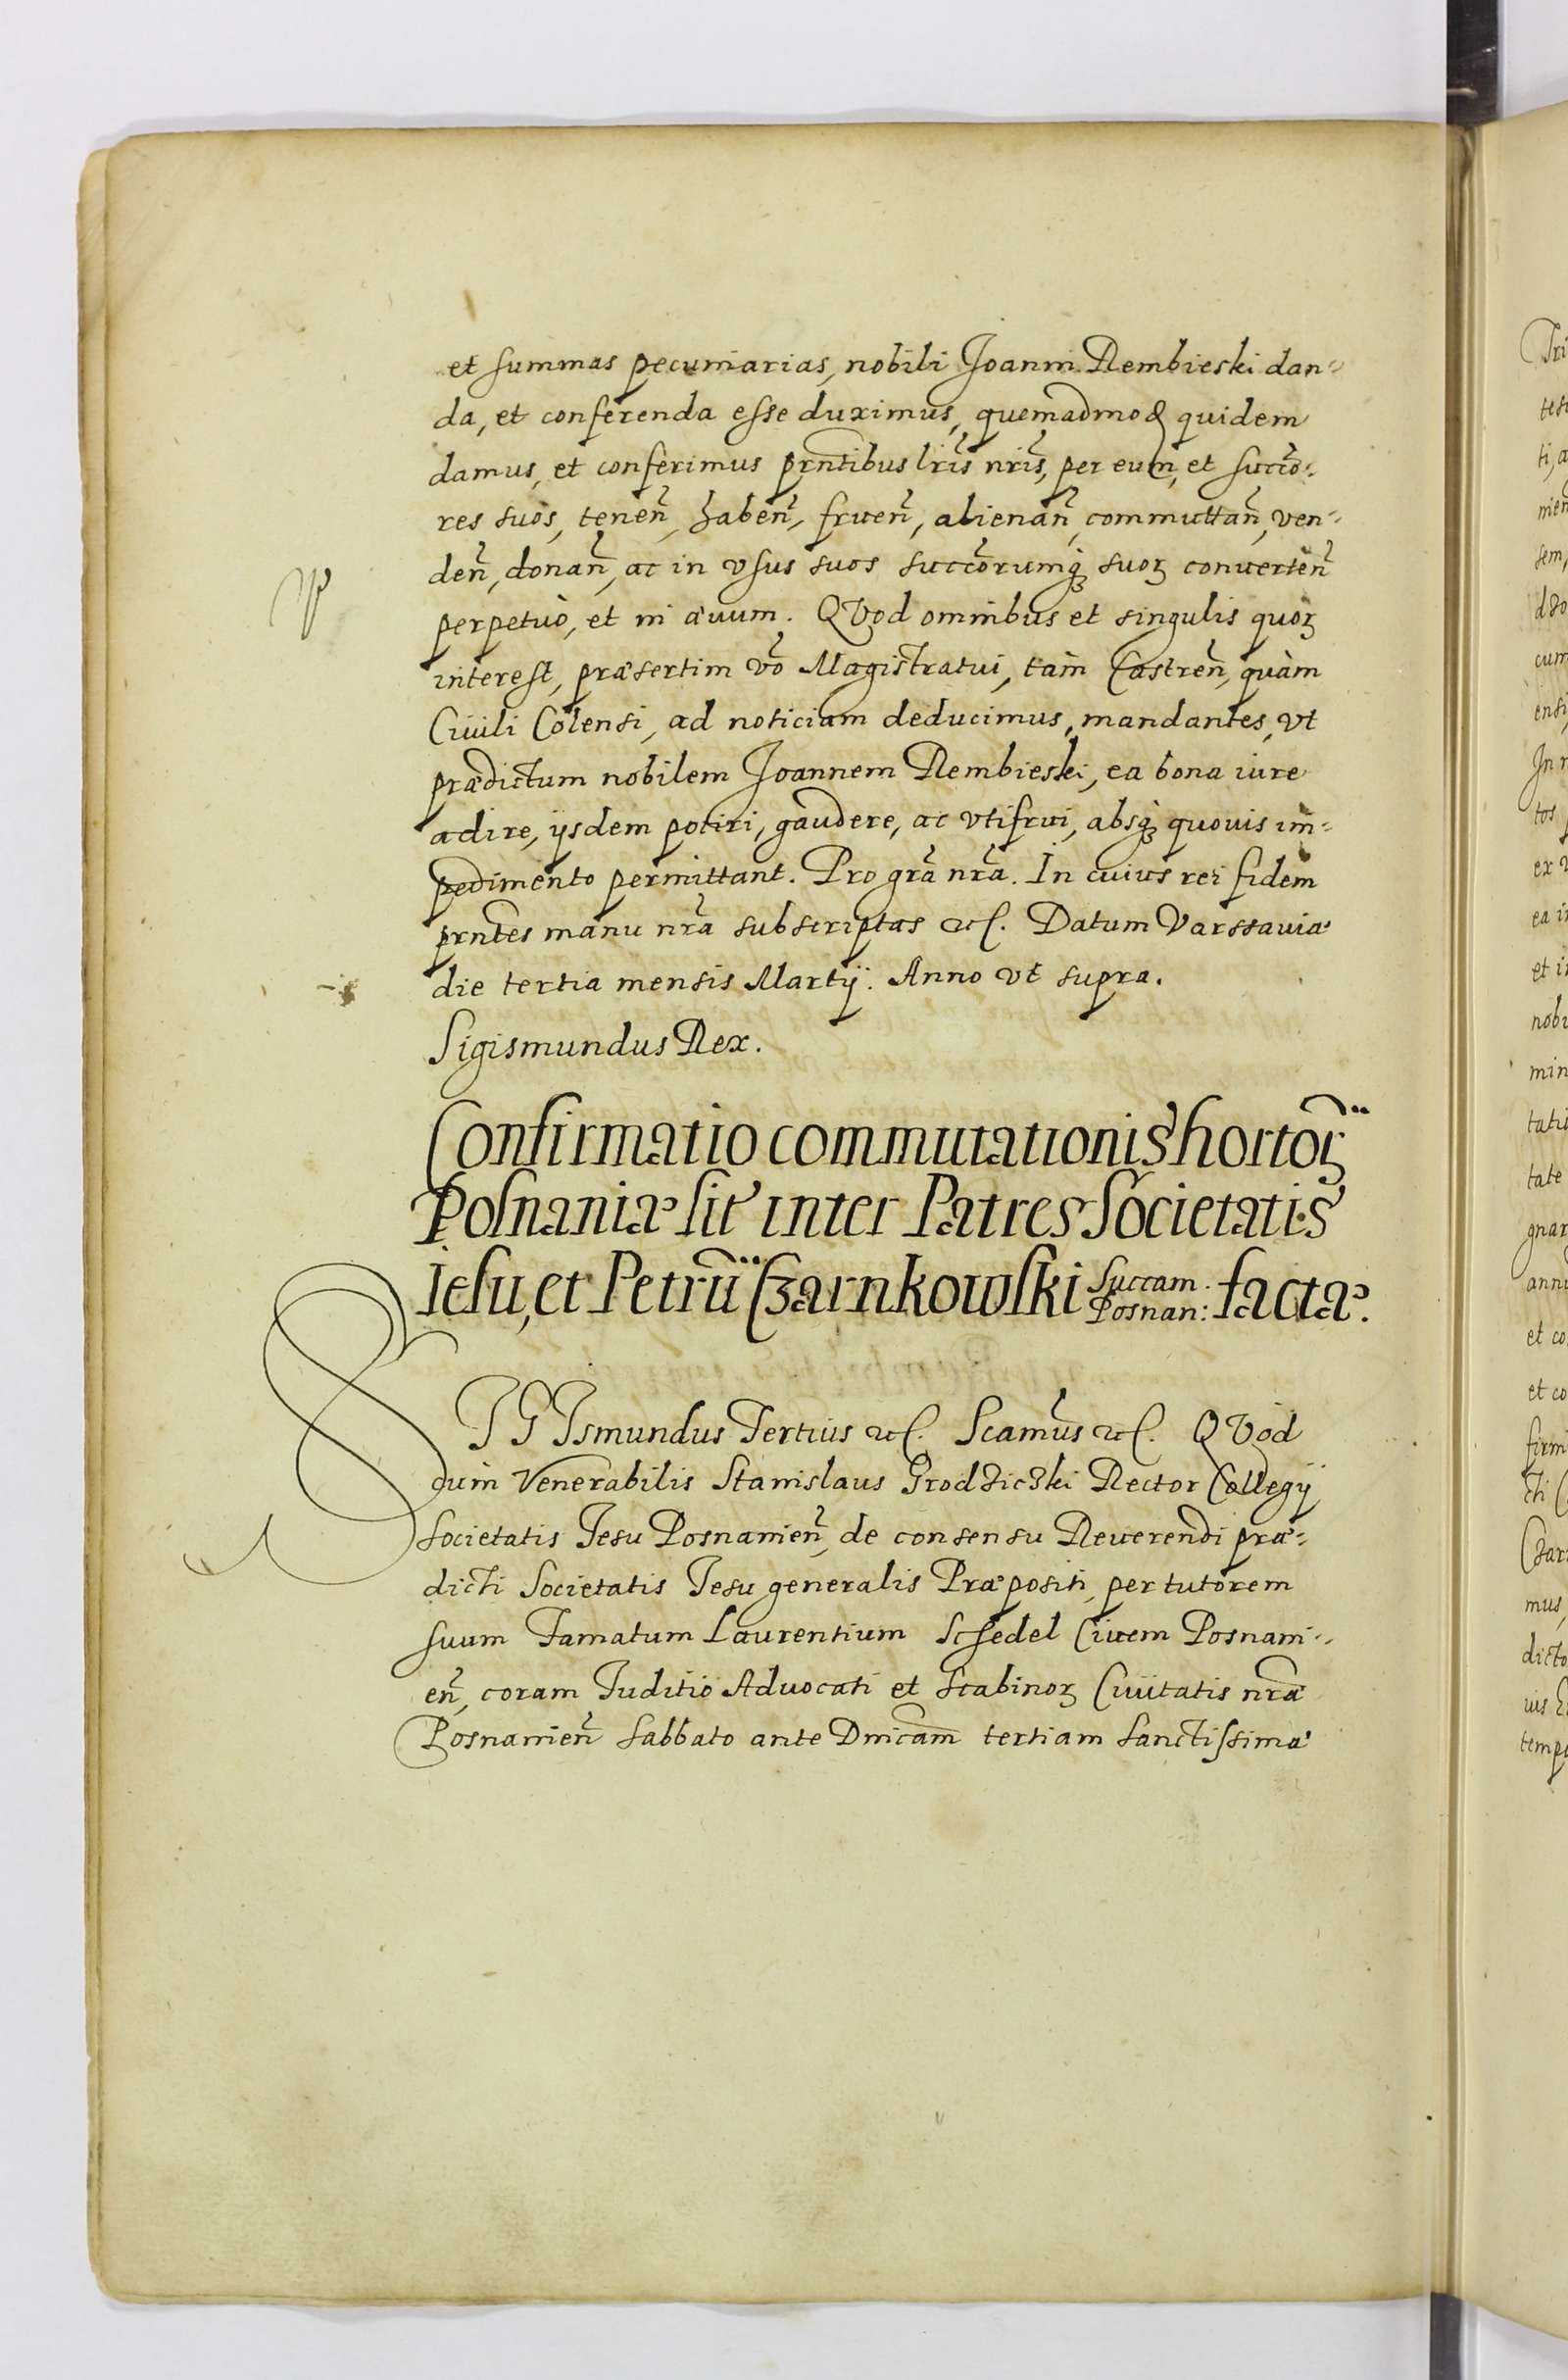 et summas pecuniarias, nobili Joanni Rembieski dan-
da, et conferenda esse duximus, quemadmod quidem
damus, et conferimus prntibus lris nris, per eum, et succo-
res suos, tenen, haben, fruen, alienan, commuttan, ven-
den, donan, ac in vsus suos succorumq suoꝝ conuerten
perpetuò, et in æuum. QVod omnibus et singulis quoꝝ
interest, præsertim vo Magistratui, tàm Castren, quàm
Ciuili Colensi, ad noticiam deducimus, mandantes, vt
prædictum nobilem Joannem Rembieski, ea bona iure
adire, ijsdem potiri, gaudere, ac vtifrui, absq quouis im-
pedimento permittant. Pro gra nra. In cuius rei fidem
prntes manu nra subscriptas etc. Datum Varssauiæ
die tertia mensis Martij. Anno vt supra.
Sigismundus Rex.
Confirmatio commutationis hortoꝝ
Posnaniæ sit inter Patres Societatis
Iesu, et Petrū Czarnkowski Succam. Posnan: factæ.
SIGIsmundus Tertius etc. Scamus etc. QVod
cum Venerabilis Stanislaus Grodzicski Rector Collegij
Societatis Jesu Posnanien, de consensu Reuerendi præ-
dicti Societatis Jesu generalis Præpositi, per tutorem
suum Famatum Laurentium Schedel Ciuem Posnani-
en, coram Juditio Aduocati et Scabinoꝝ Ciuitatis nræ
Posnanien Sabbato ante Dnicam tertiam Sanctissimæ